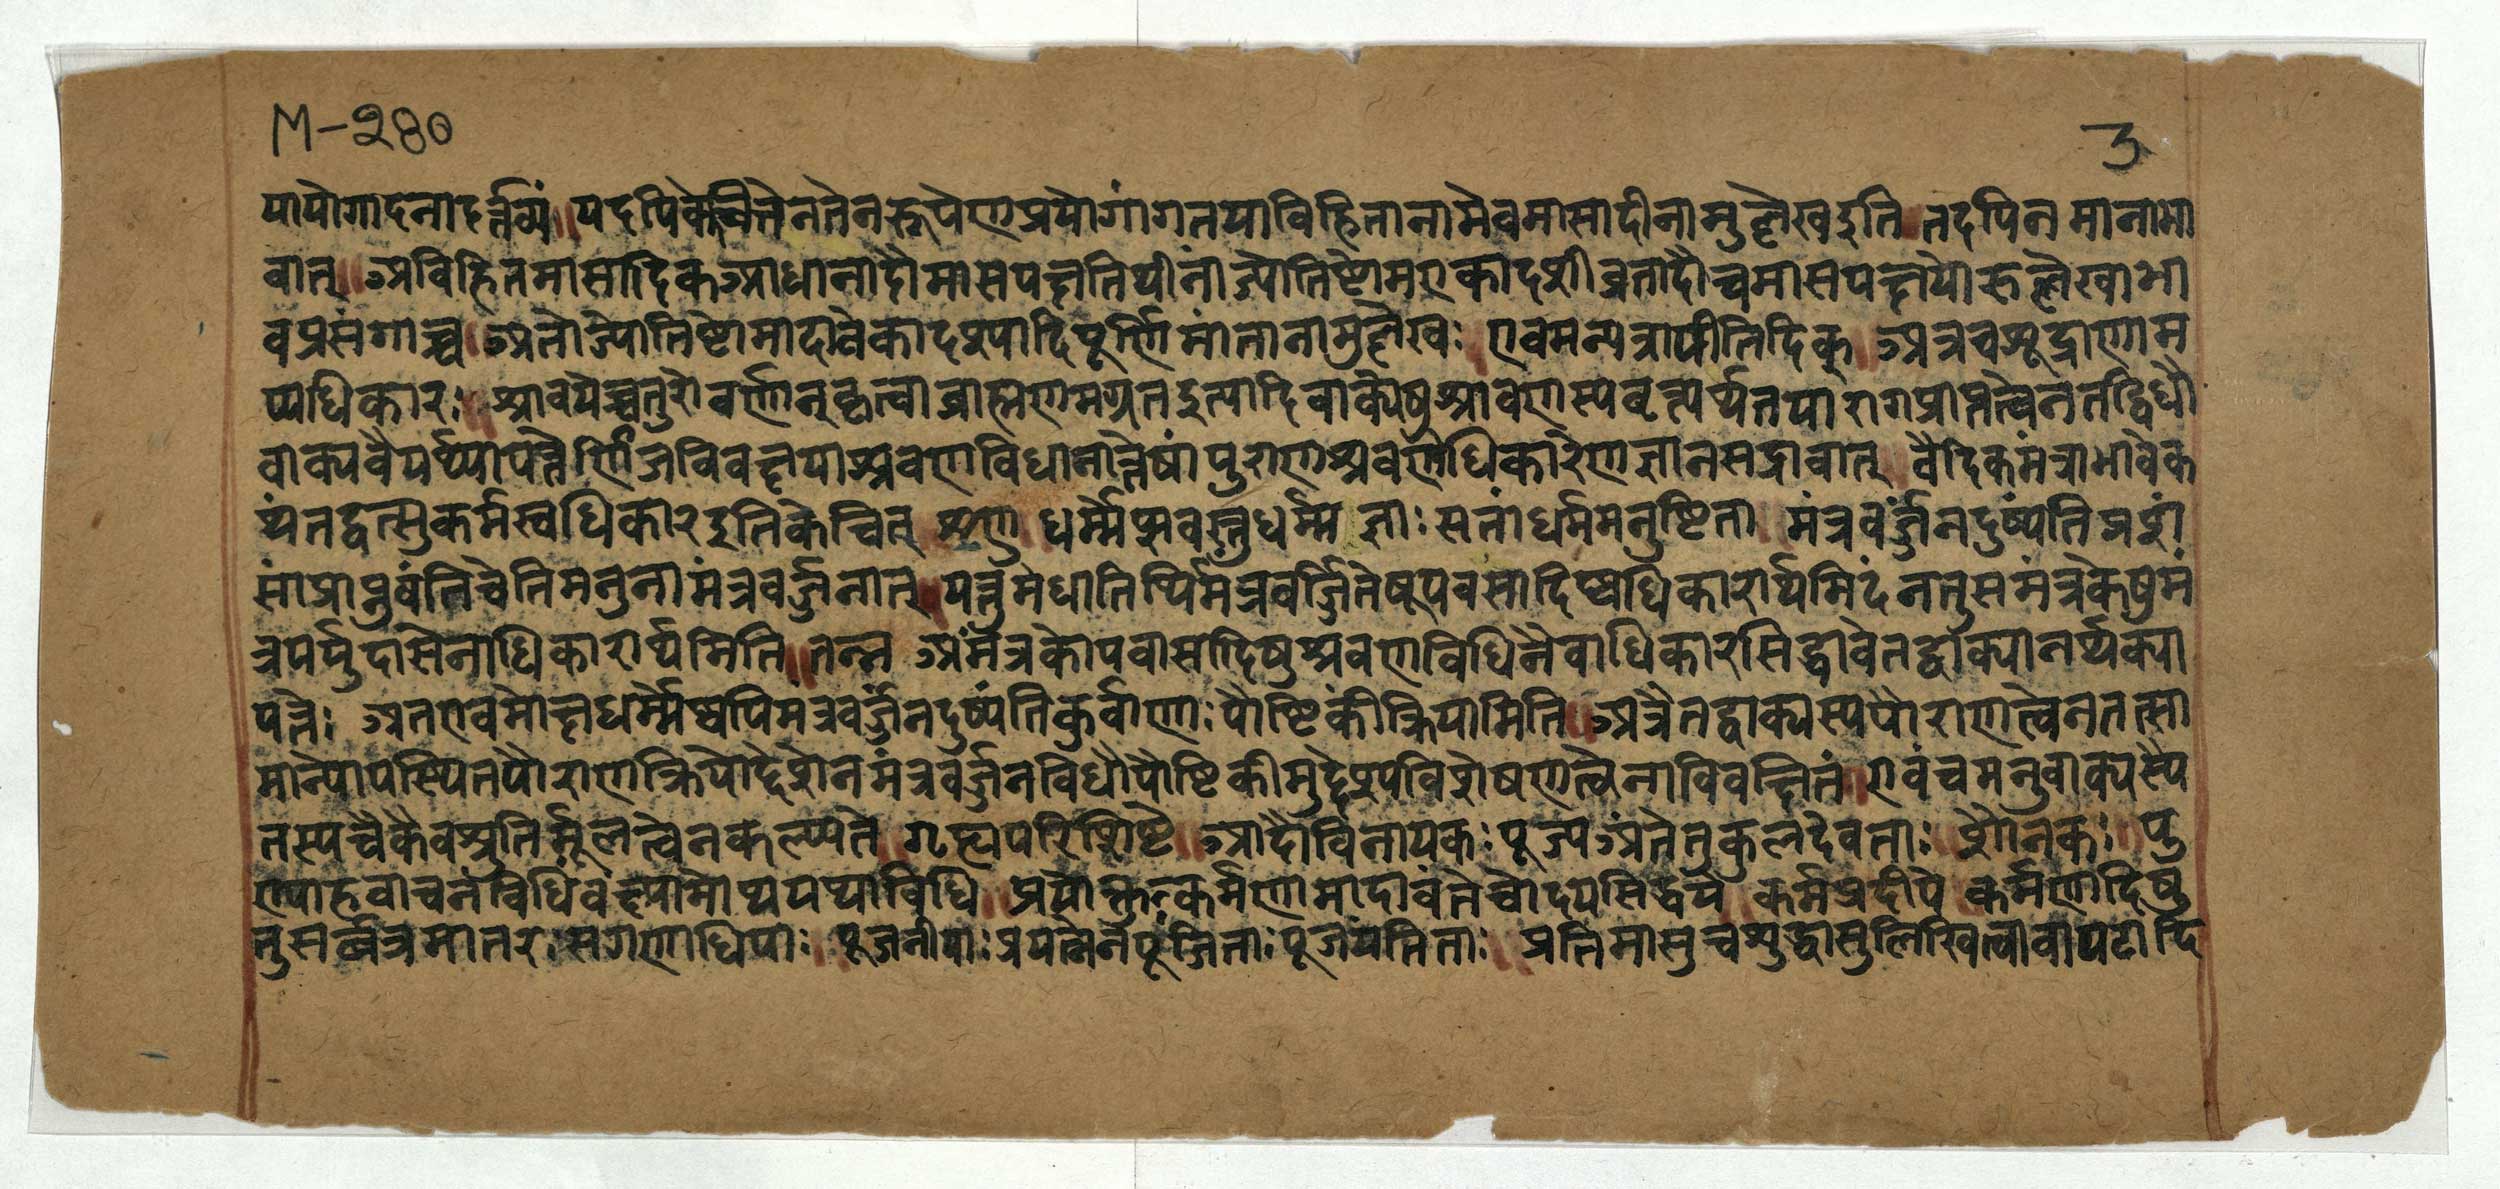 M-२४०
3
यायोगादनादर्त्तव्यं ॥ यदपिकेचित्तेनतेनरूपेणप्रयोगांगतयाविहितानामेवमासादीनामुल्लेखइति तदपिन मानाभा
वात् ॥ अविहितमासादिकआधानादौमासपक्षतिथीनांज्योतिष्टोमएकादशीव्रतादौचमासपक्षयोरुल्लेखाभा
वप्रसंगाच्च ॥ अतोज्योतिष्टोमादावेकादश्यादिपूर्णिमांतानामुल्लेखः ॥ एवमन्यत्रापीतिदिक् ॥ अत्रचशूद्राणाम
प्यधिकारः ॥ श्रावयेच्चतुरोवर्णान्कृत्वाब्राह्मणमग्रतइत्यादिवाक्येषुश्रावणस्यवृत्यर्थतयारागप्राप्तत्वेनतद्विधौ
वाक्यवैयर्थ्यापत्तेर्णिजविवक्षयाश्रवणविधानात्तेषांपुराणश्रवणाधिकारेणज्ञानसद्भावात् वैदिकमंत्राभावेक
थंतद्वत्सुकर्मस्वधिकारइतिकेचित् शृणु धर्म्मेप्सवस्तुधर्म्मज्ञाः सतांधर्ममनुष्टिता मंत्रवर्ज्जंनदुष्यंतिप्रशं
सांप्राप्नुवंतिचेतिमनुनामंत्रवर्ज्जनात् ॥ यत्तुमेधातिथिर्मंत्रवर्ज्जितेषूपवासादिष्वधिकारार्थमिदंनतुसमंत्रकेषुमं
त्रपर्युदासेनाधिकारार्थमिति ॥ तन्न अमंत्रकोपवासादिषुश्रवणविधिनैवाधिकारसिद्धावेतद्वाक्यानर्थक्या
पत्तेः अतएवमोक्षधर्म्मेष्वपिमंत्रवर्ज्जंनदुष्यंतिकुर्वाणाः पौष्टिकींक्रियामिति ॥ अत्रैतद्वाक्यस्यपौराणत्वेनतत्सा
मान्यापस्थितपौराणक्रियोद्देशेनमंत्रवर्ज्जनविधौपौष्टिकीमुद्देश्यविशेषणत्वेनाविवक्षितं ॥ एवंचमनुवाक्यस्यै
तस्यचैकैवश्रुतिर्मूलत्वेनकल्प्यते ॥ गृह्यपरिशिष्टे ॥ आदौविनायकः पूज्यअंतेतुकुलदेवताः ॥ शौनकः ॥ पु
ण्याहवाचनविधिंवक्ष्यामोथयथाविधि ॥ प्रयोक्तृन्कर्मणामादावंतेचोदयसिद्धये कर्मप्रदीपे कर्मणादिषु
तुसर्व्वत्रमातरः सगणाधिपाः ॥ पूजनीयाः प्रयत्नेनपूजिताः पूजयंतिताः ॥ प्रतिमासुचशुद्धासुलिखित्वावापटादि